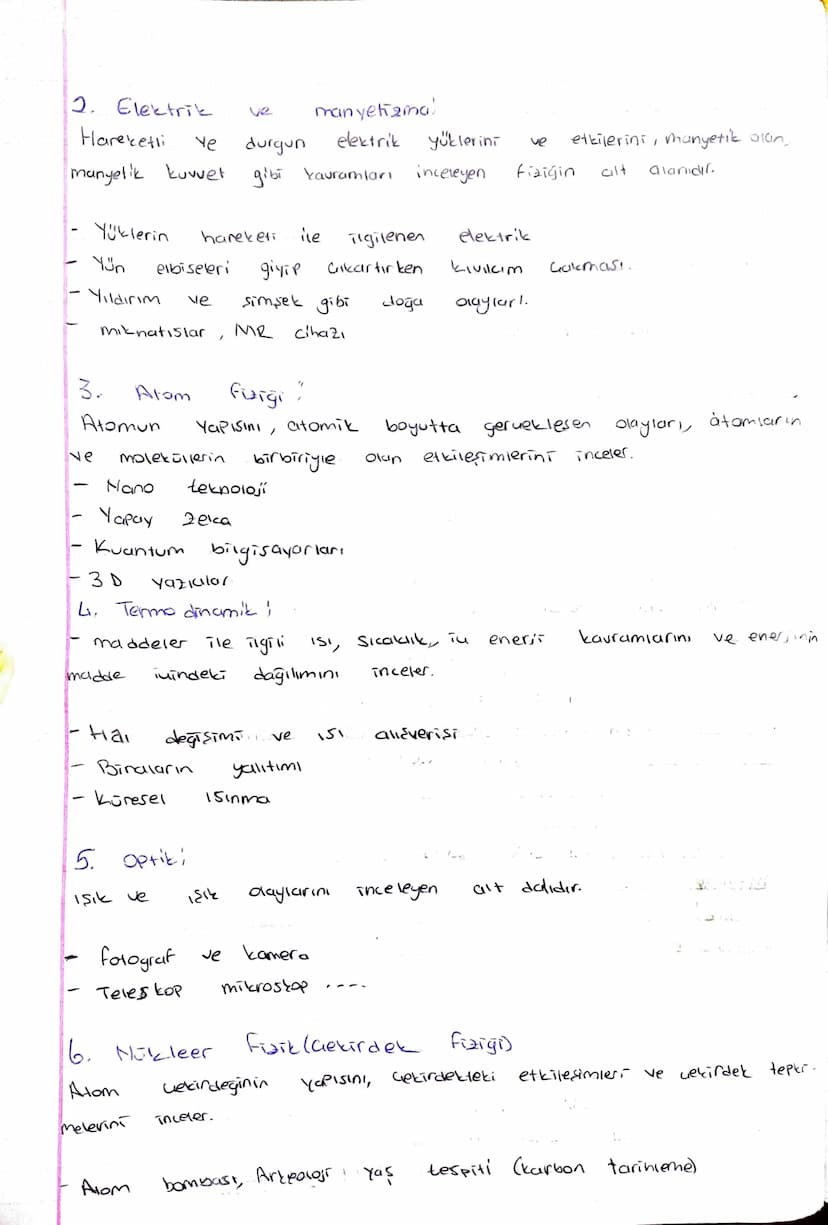 2. Elektrik ve manyetizma:
Hareketli ve durgun elektrik yüklerini ve etkilerini, manyetik alan,
manyetik kuvvet gibi kavramları inceleyen fiziğin alt alanıdır.
- Yüklerin hareketi ile ilgilenen elektrik
- Yün elbiseleri giyip çıkartırken kıvılcım çakması.
- Yıldırım ve şimşek gibi doğa olayları.
- mıknatıslar, MR cihazı
3. Atom fiziği:
Atomun yapısını, atomik boyutta gerçekleşen olayları, atomların
ve moleküllerin birbiriyle olan etkileşimlerini inceler.
- Nano teknoloji
- Yapay zeka
- Kuantum bilgisayarları
- 3D yazıcılar
4. Termodinamik;
- maddeler ile ilgili ısı, sıcaklık, iç enerji kavramlarını ve enerjinin
madde içindeki dağılımını inceler.
- Hal değişimi ve ısı alışverişi
- Binaların yalıtımı
- Küresel ısınma
5. Optik;
ışık ve ışık olaylarını inceleyen alt dalıdır.
- fotoğraf ve kamera
- Teleskop mikroskop ....
6. Nükleer Fizik (Çekirdek fiziği)
Atom çekirdeğinin yapısını, çekirdekteki etkileşimleri ve çekirdek tepki-
melerini inceler.
- Atom bombası, Arkeoloji yaş tespiti (karbon tarihleme)